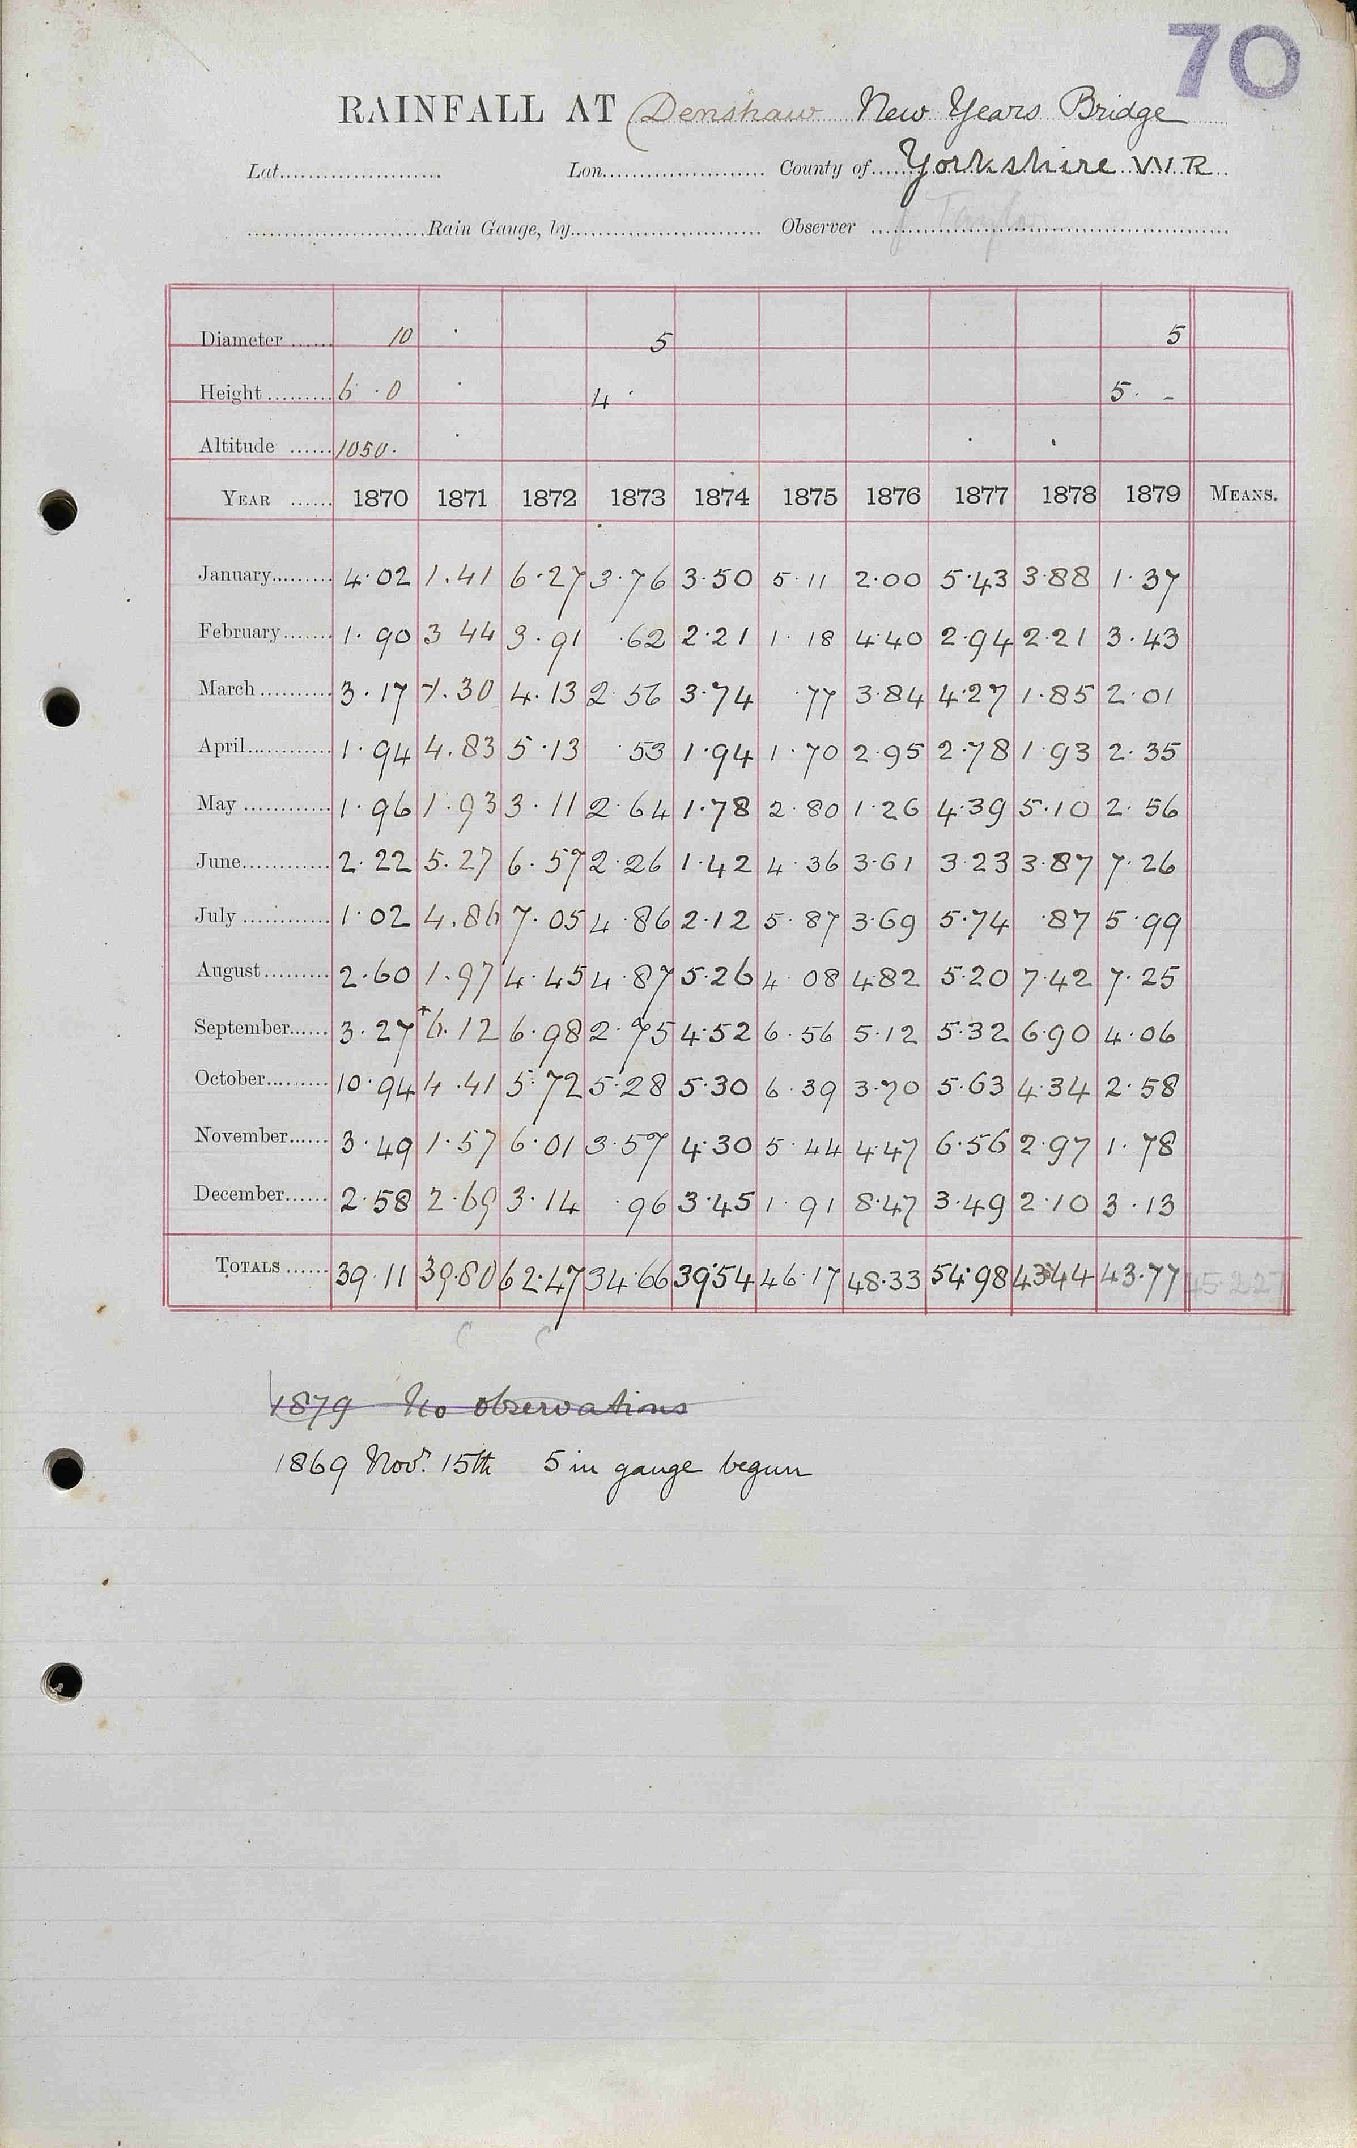 70
RAINFALL AT (Denshaw New Years Bridge
Lat. Lon. County of Yorkshire W R
Rain Gauge, by Observer J Taylor
Diameter 10 5 5
Height 6 · 0 4 · 5 · -
Altitude 1050 ·
YEAR 1870 1871 1872 1873 1874 1875 1876 1877 1878 1879 MEANS.
January 4·02 1.41 6·27 3·76 3·50 5·11 2·00 5·43 3·88 1·37
February 1·90 3 44 3·91 ·62 2·21 1·18 4·40 2·94 2·21 3·43
March 3·17 1.30 4·13 2·56 3·74 ·77 3·84 4·27 1·85 2·01
April 1·94 4.83 5·13 ·53 1·94 1·70 2·95 2·78 1·93 2·35
May 1·96 1·93 3·11 2·64 1·78 2·80 1·26 4·39 5·10 2·56
June 2·22 5.27 6·57 2·26 1·42 4·36 3·61 3·23 3·87 7·26
July 1·02 4.86 7·05 4·86 2·12 5·87 3·69 5·74 ·87 5·99
August 2·60 1.97 4·45 4·87 5·26 4·08 4·82 5·20 7·42 7·25
September 3·27 +6.12 6·98 2·75 4·52 6·56 5·12 5·32 6·90 4·06
October 10·94 4.41 5·72 5·28 5·30 6·39 3·70 5·63 4·34 2·58
November 3·49 1·57 6·01 3·57 4·30 5·44 4·47 6·56 2·97 1·78
December 2·58 2·69 3·14 ·96 3·45 1·91 8·47 3·49 2·10 3·13
TOTALS 39·11 39·80 62·47 34·66 39·54 46·17 48·33 54·98 43·44 43·77 45·227
C C
1879 No observations
1869 Novr. 15th 5 in gauge begun